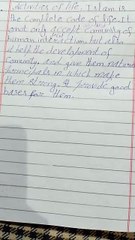 activities of life. Islam is
the complete code of life. It
not only accept community of
human interaction, but also
it help the development of
comunity, And gave them natural
principals in which make
them strong, & provide good
bases for them.